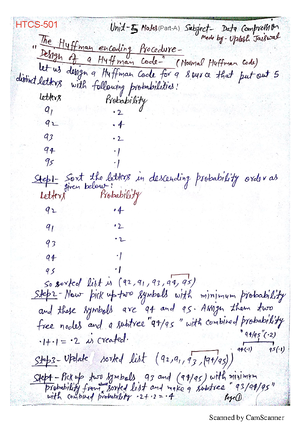 HTCS-501
Unit-5 Notes (Part-A) Subject- Data Compression
made by- Updesh Jaiswal
"The Huffman encoding Procedure-
Design of a Huffman Code- (Normal Huffman Code)
let us design a Huffman Code for a source that put out 5
distinct letters with following probabilities:
letters Probability
a1 .2
a2 .4
a3 .2
a4 .1
a5 .1
Step1- Sort the letters in descending probability order as
given below:
letters Probability
a2 .4
a1 .2
a3 .2
a4 .1
a5 .1
So sorted list is (a2, a1, a3, a4, a5)
Step2- Now pick up two symbols with minimum probability
and these symbols are a4 and a5. Assign them two
free nodes and a subtree "a4/a5" with combined probability
.1+.1 = .2 is created.
"a4/a5" (.2)
a4(.1) a5(.1)
Step3- Update sorted list (a2, a1, a3, (a4/a5))
Step4- Pick up two symbols a3 and (a4/a5) with minimum
probability from sorted list and make a subtree "a3/a4/a5"
with combined probability .2+.2 = .4
Page 1
Scanned by CamScanner